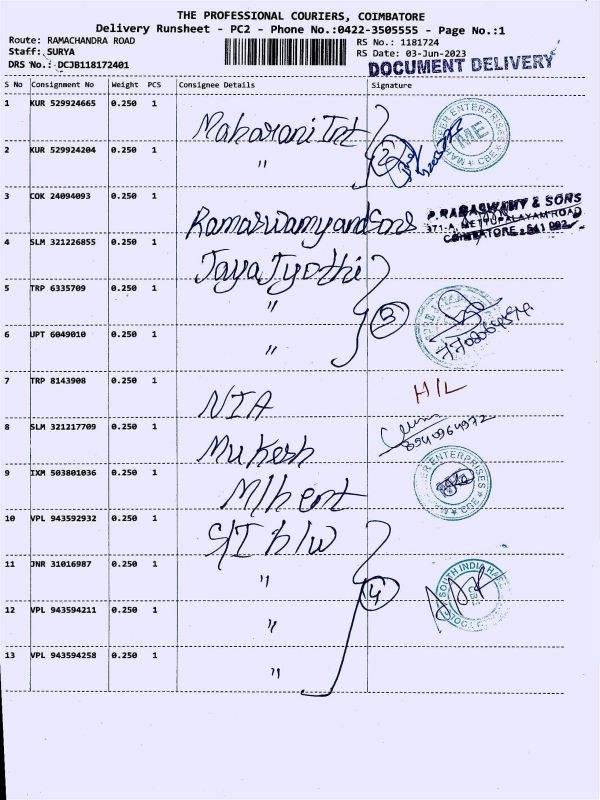 THE PROFESSIONAL COURIERS, COIMBATORE
Delivery Runsheet - PC2 - Phone No.:0422-3505555 - Page No.:1
Route: RAMACHANDRA ROAD
Staff: SURYA
DRS No.: DCJB118172401
RS No.: 1181724
RS Date: 03-Jun-2023
DOCUMENT DELIVERY
S No Consignment No Weight PCS Consignee Details Signature
1 KUR 529924665 0.250 1 Maharani Int
2 KUR 529924204 0.250 1 " 2
3 COK 24094093 0.250 1 Ramaswamy and Sons
P. RAMASWAMY & SONS
371-A, METTUPALAYAM ROAD
COIMBATORE - 641 002
4 SLM 321226855 0.250 1 Jaya Jyothi
5 TRP 6335709 0.250 1 " 3
6 UPT 6049010 0.250 1 "
7 TRP 8143908 0.250 1 NIA H/L
8 SLM 321217709 0.250 1 Mukesh
9 IXM 503801036 0.250 1 M/h ent
ENTERPRISES
10 VPL 943592932 0.250 1 S/I h/w
11 JNR 31016987 0.250 1 " 4
SOUTH INDIA
12 VPL 943594211 0.250 1 "
13 VPL 943594258 0.250 1 "